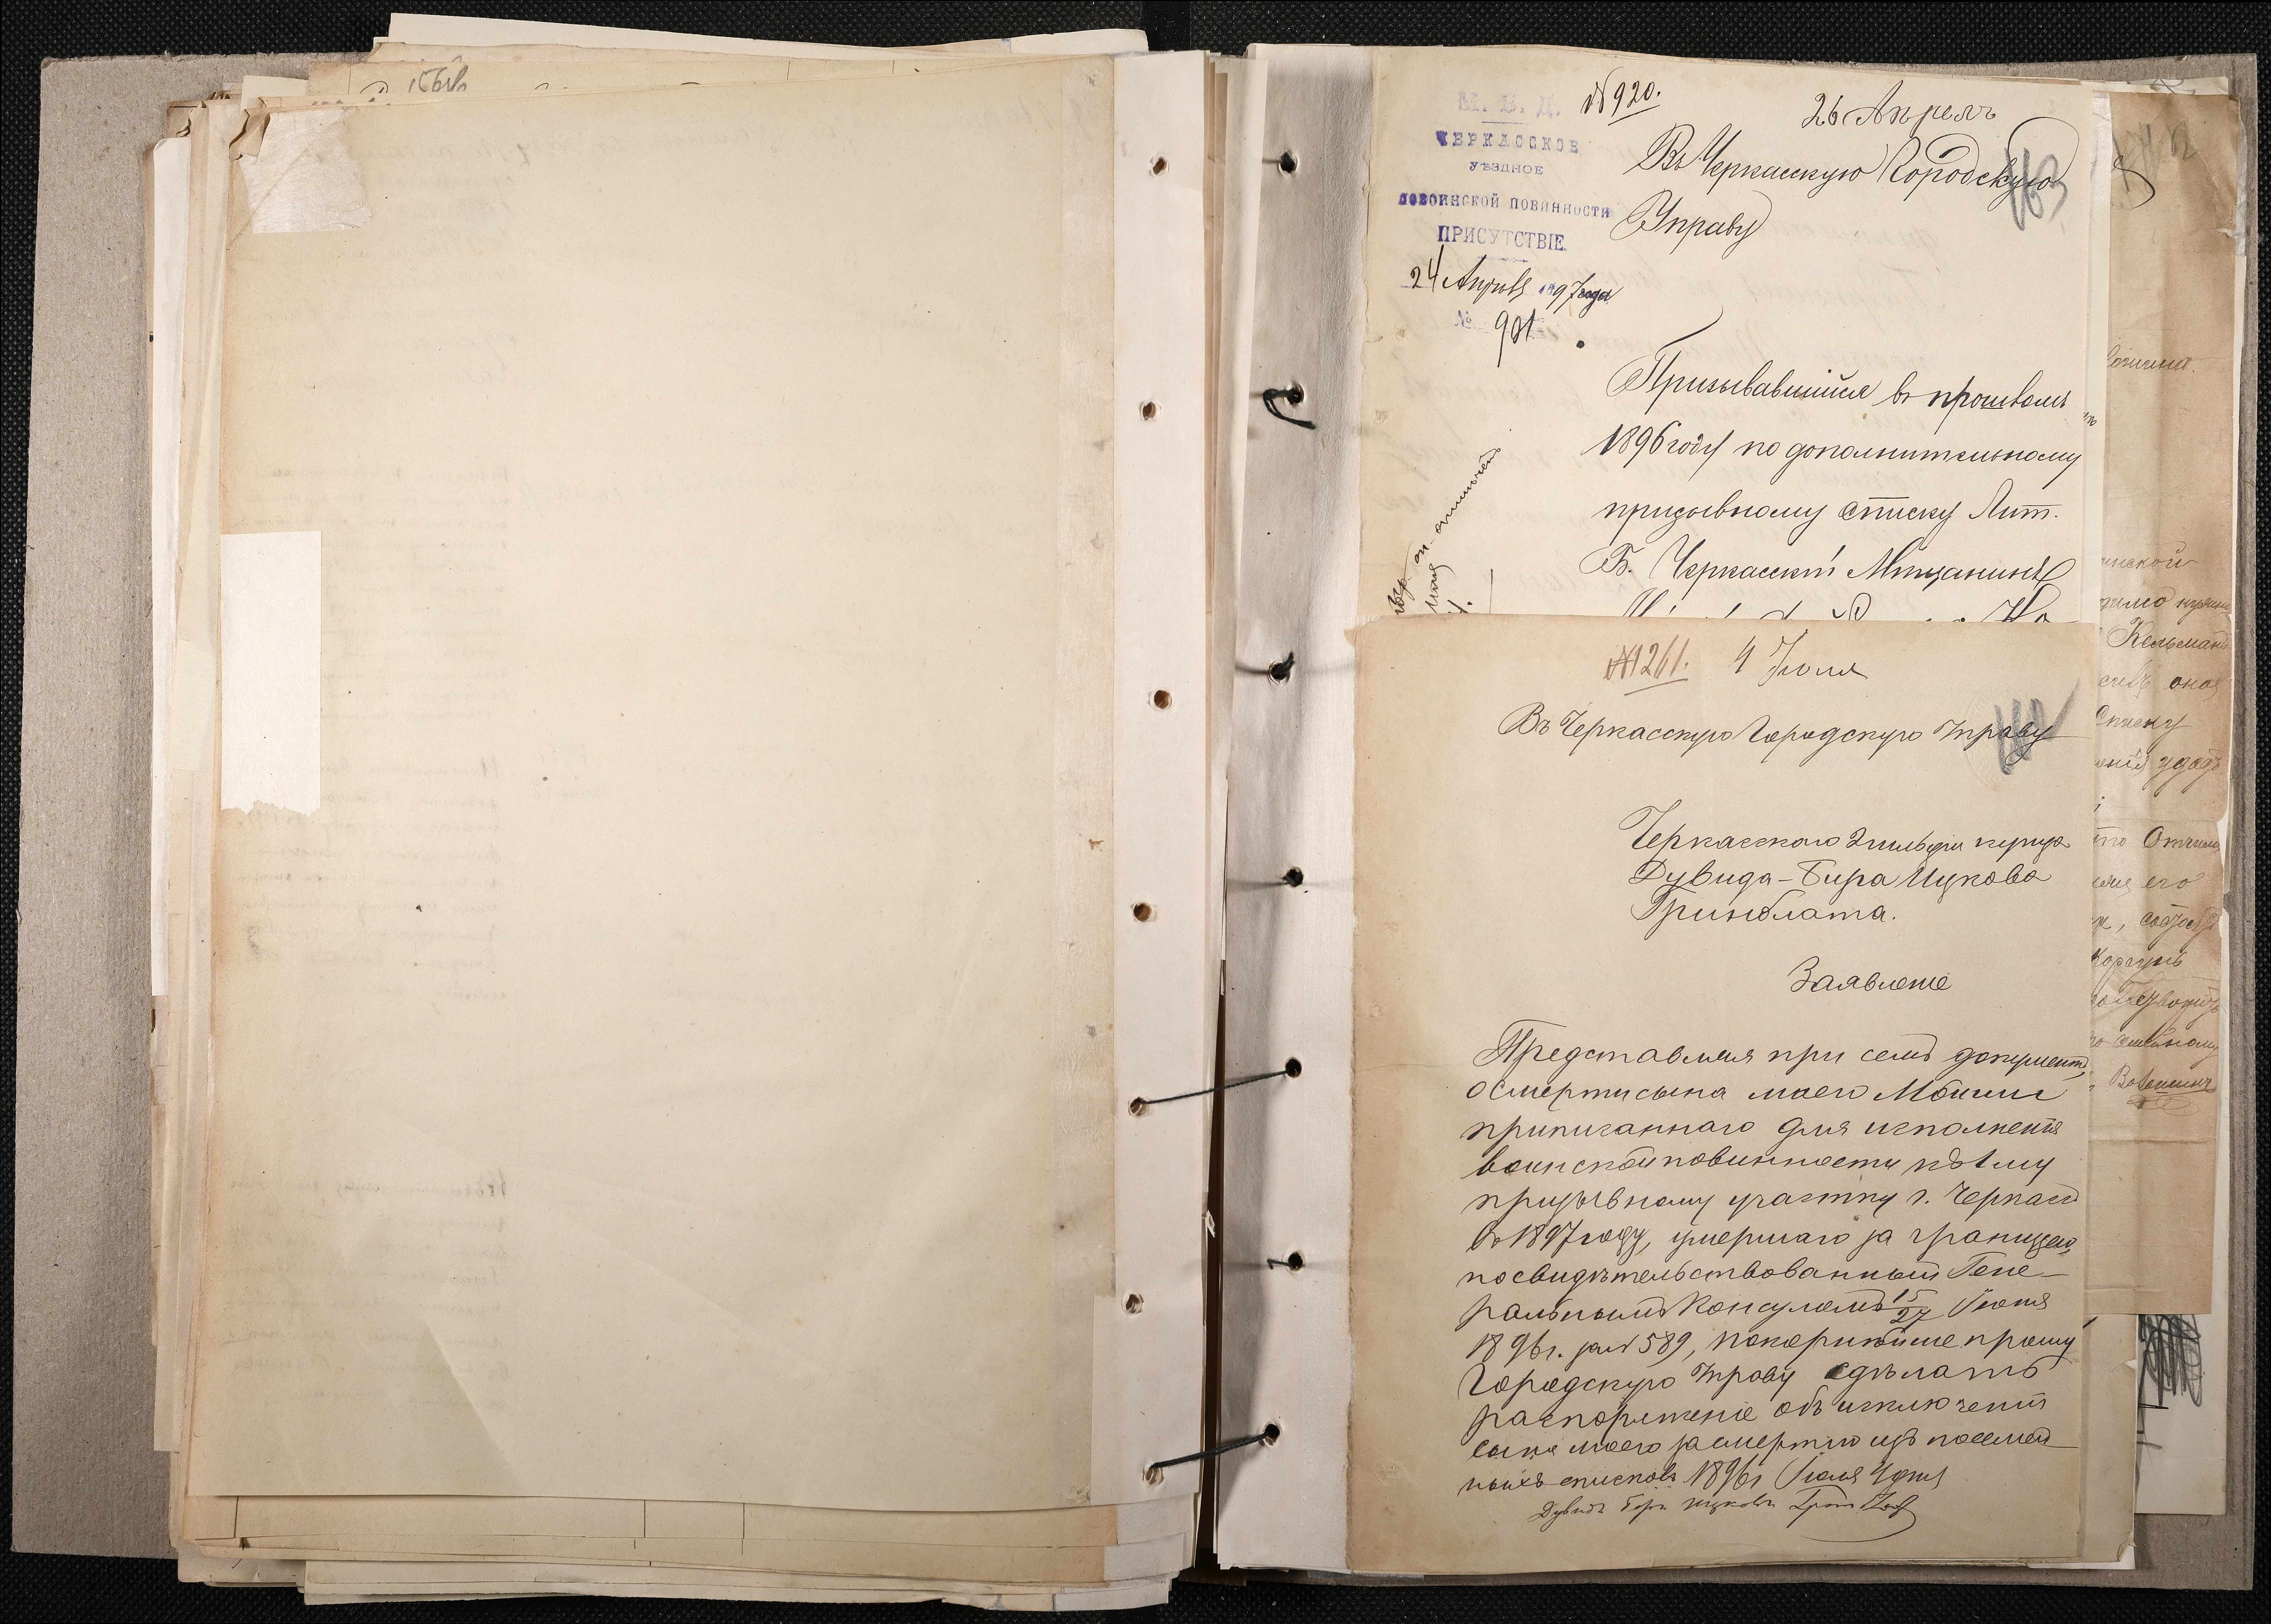 М. В. Д.
ЧЕРКАССКОЕ
УѢЗДНОЕ
ПО ВОИНСКОЙ ПОВИННОСТИ
ПРИСУТСТВІЕ.
24 Апрѣля 1897 года
№ 901
№ 920.
26 Апрель
Въ Черкасскую Городскую
Управу
Призывавшійся въ прошломъ
1896 году по дополнительному
призывному списку Лит.
Б. Черкасскій Мѣщанинъ
№ 1261. 4 Іюля
Въ Черкасскую Городскую Управу
Черкасского 2 гильдіи купца
Дувида-Бера Ицкова
Гринблата.
Заявленіе
Представляя при семъ документъ
о смерти сына моего Мошки
приписаннаго для исполненія
воинской повинности къ 1му
призывному участку г. Черкассъ
въ 1897 году, умершаго за границею,
посвидѣтельствованный Гене-
ральнымъ Консуломъ 15/27 Іюня
1896 г. за № 589, покорнѣйше прошу
Городскую Управу сдѣлать
распоряженіе объ исключеніи
сына моего за смертію изъ посемей-
ныхъ списковъ 1896 г Іюля 4 дня
Дувидъ Беръ Ицковъ
Кельманъ
списку
его